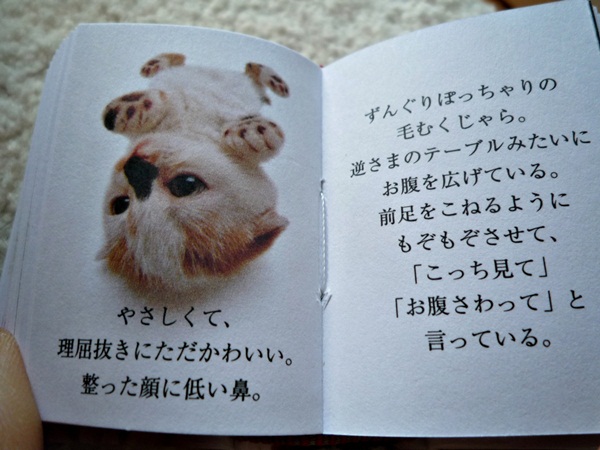 やさしくて、
理屈抜きにただかわいい。
整った顔に低い鼻。
ずんぐりぽっちゃりの
毛むくじゃら。
逆さまのテーブルみたいに
お腹を広げている。
前足をこねるように
もぞもぞさせて、
「こっち見て」
「お腹さわって」と
言っている。